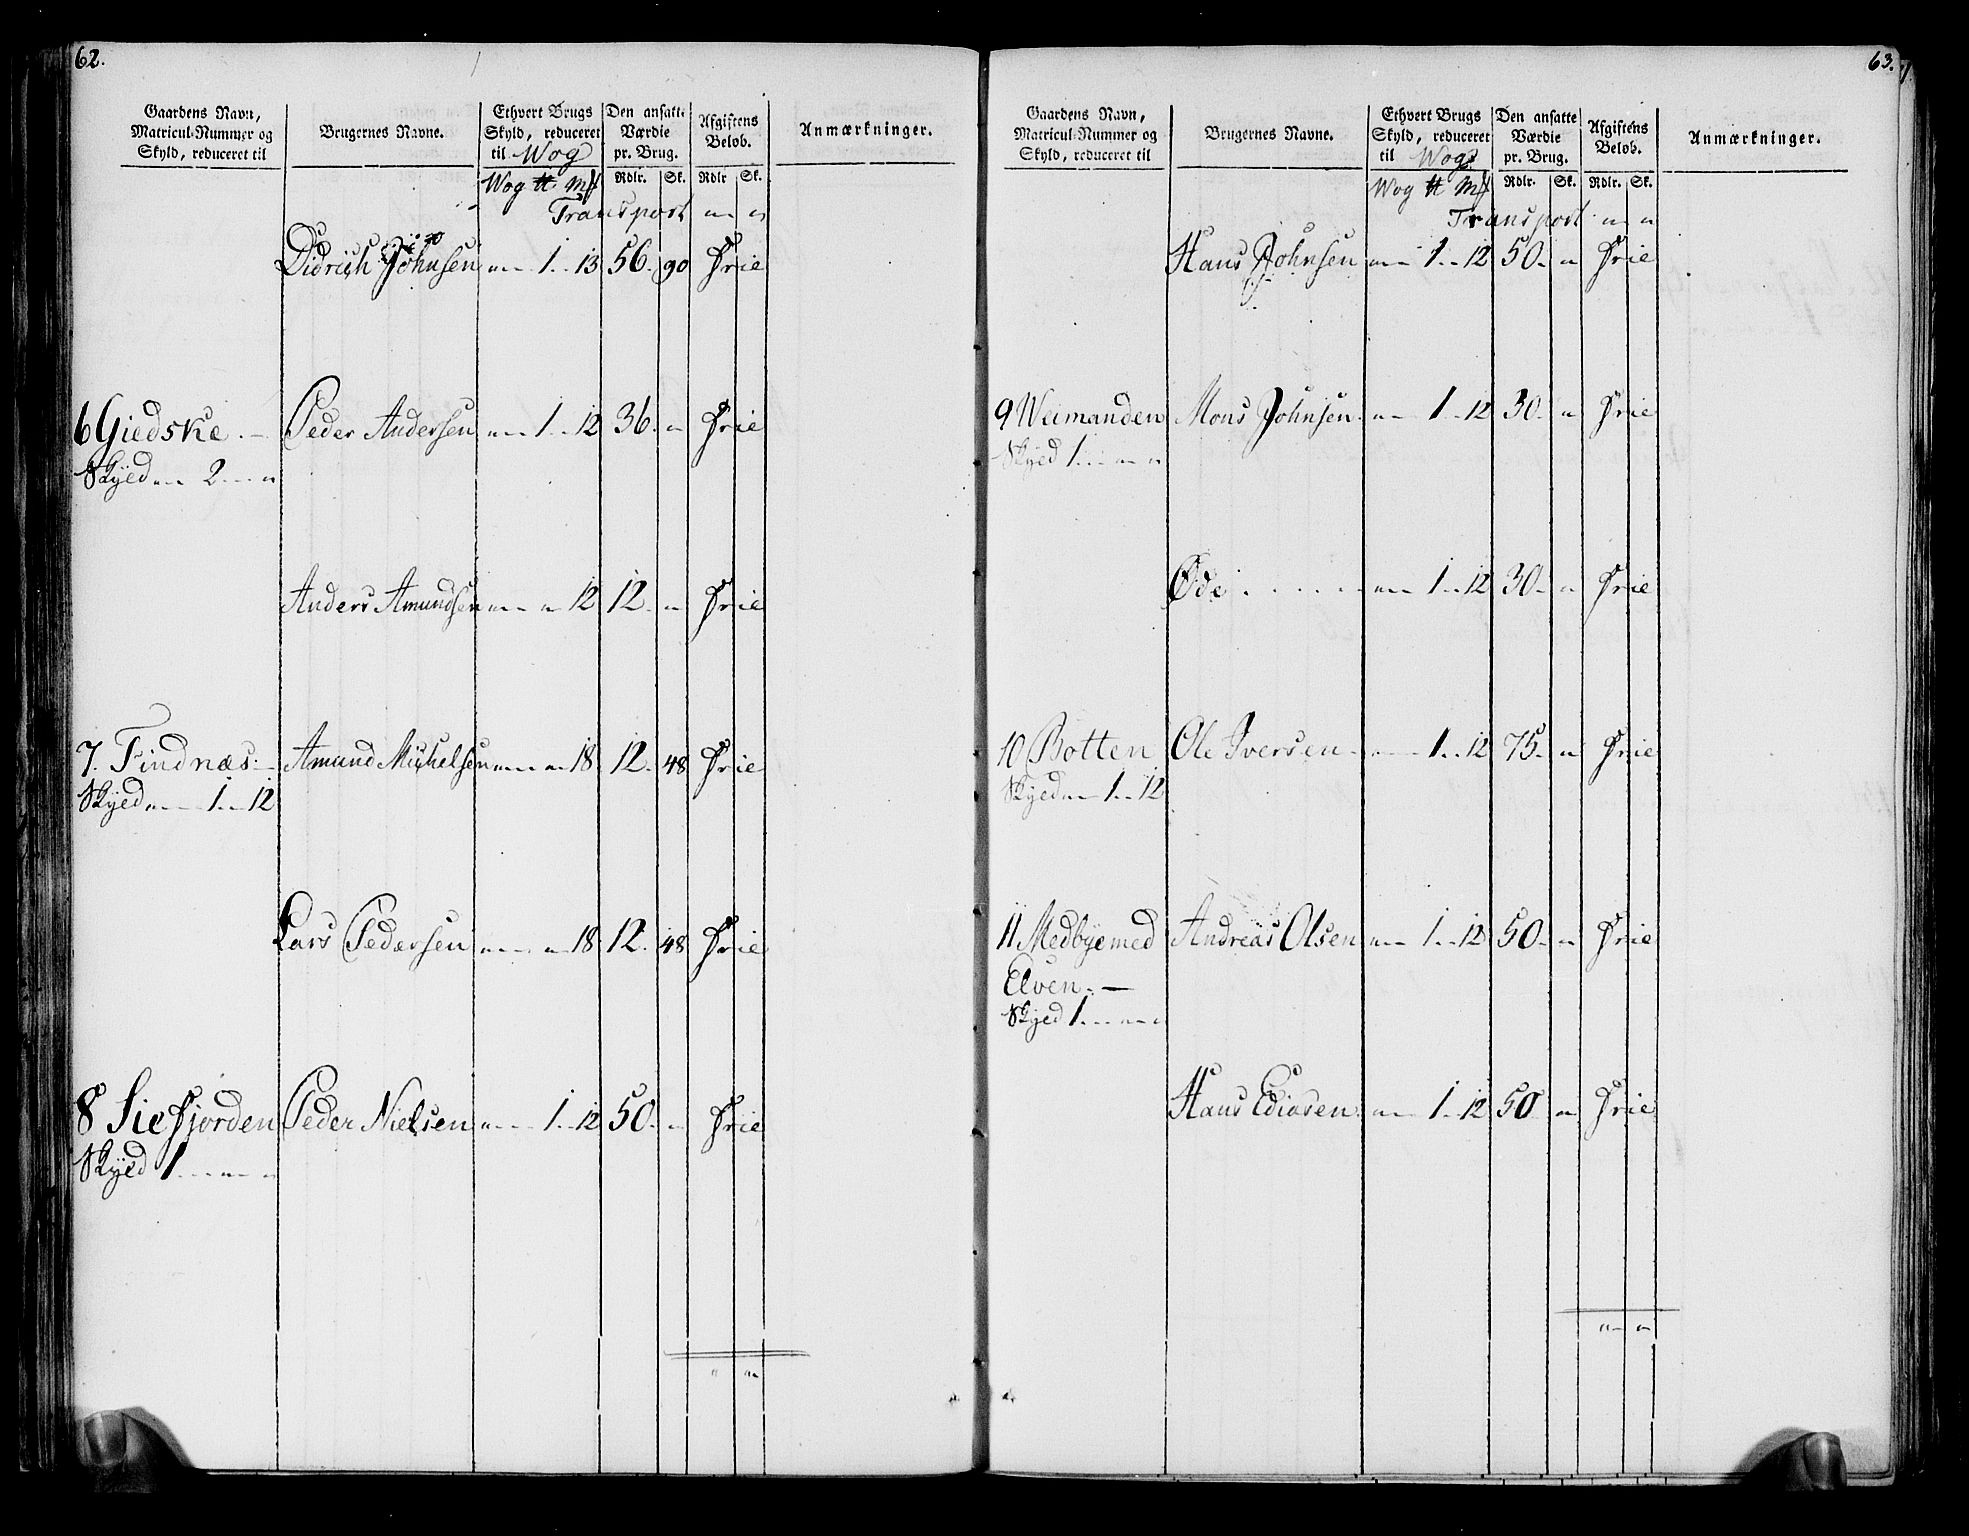 62.
Gaardens Navn, Matricul-Nummer og Skyld, reduceret til
Brugernes Navne.
Ethvert Brugs Skyld, reduceret til Wog
Den ansatte Værdie pr. Brug.
Afgiftens Beløb.
Anmærkninger.
Wog ℔ Mk Rdlr. Sk. Rdlr Sk.
Transport " "
Didrich Johnsen " 1 13 56. 90 Frie
6 Giedske. Peder Andersen " 1 12 36. " Frie
Skyld " 2 "
Anders Amundsen " " 12 12. " Frie
7. Findnæs. Amund Michelsen " " 18 12. 48 Frie
Skyld " 1 12
Lars Pedersen " " 18 12. 48 Frie
8 Siefjorden Peder Nielsen " 1 12 50. " Frie
Skyld 1 " "
" "
63.
Gaardens Navn, Matricul-Nummer og Skyld, reduceret til
Brugernes Navne.
Ethvert Brugs Skyld, reduceret til Wog
Den ansatte Værdie pr. Brug.
Afgiftens Beløb.
Anmærkninger.
Wog ℔ Mk Rdlr. Sk. Rdlr. Sk.
Transport " "
Hans Johnsen " 1 12 50. " Frie
9 Weimanden Mons Johnsen " 1 12 30. " Frie
Skyld 1 " "
Øde " 1 12 30. " Frie
10 Botten Ole Iversen " 1 12 75. " Frie
Skyld " 1 12
11 Medbye med Andreas Olsen " 1 12 50. " Frie
Elven.
Skyld 1 " "
Hans Ediasen " 1 12 50 " Frie
" "